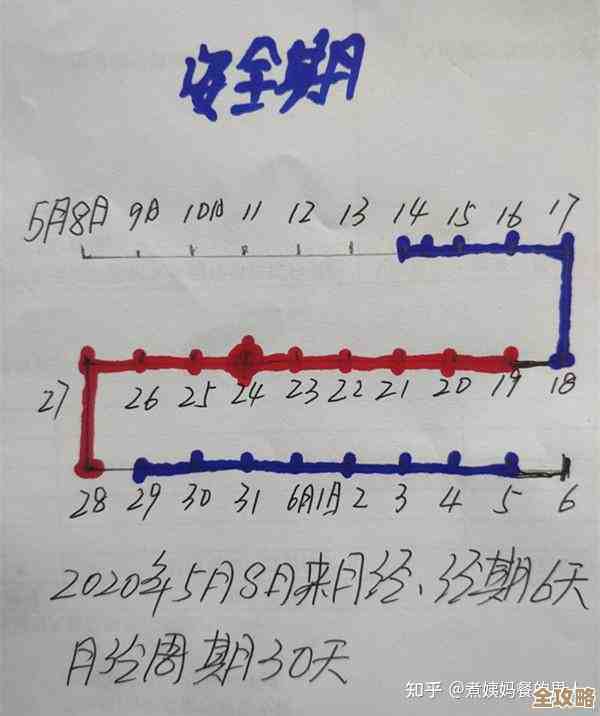 安全期
5月8日 9日 10日 11 12 13 14 15 16 17
27 26 25 24 23 22 21 20 19 18
28 29 30 31 6月1日 2 3 4 5 6
2020年5月8日来月经、经期6天
月经周期30天
知乎 @煮姨妈餐的男人
全攻略